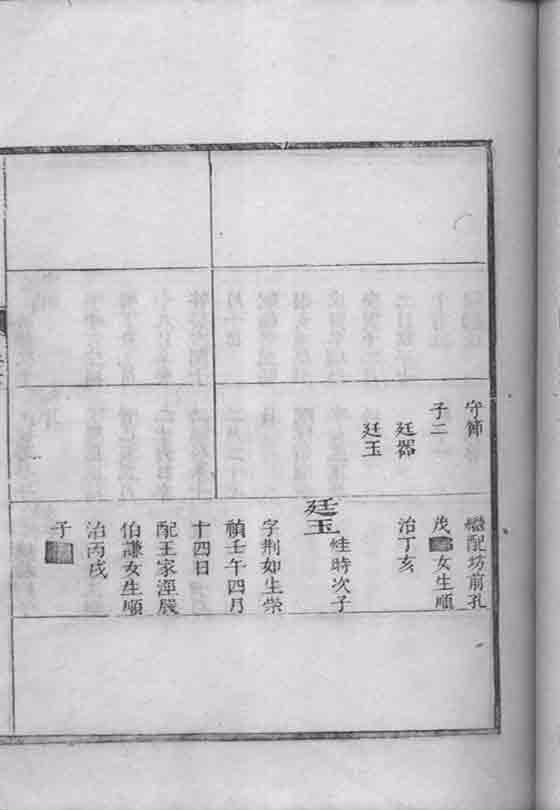 守節
子二
廷器
廷玉
繼配坊前孔
茂 女生順
治丁亥
廷玉
時次子
字荆如生崇
禎壬午四月
十四日
配王家涇嚴
伯謙女生順
治丙戌
子